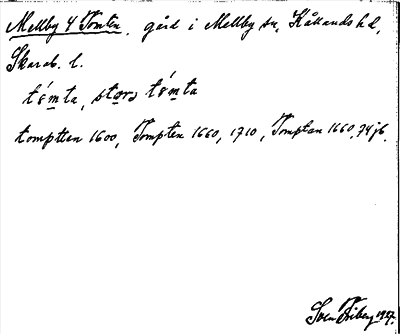 Mellby 4 Tomten. gård i Mellby sn, Kållands hd,
Skarab. l.
tómta, stora tómta
tomptten 1600, Tompten 1660, 1710, Tomptan 1660, 74 jb.
Sven Friberg 1927.